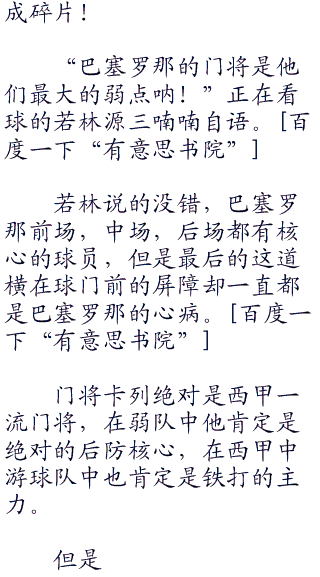 成碎片！
“巴塞罗那的门将是他
们最大的弱点呐！”正在看
球的若林源三喃喃自语。[百
度一下“有意思书院”]
若林说的没错，巴塞罗
那前场，中场，后场都有核
心的球员，但是最后的这道
横在球门前的屏障却一直都
是巴塞罗那的心病。[百度一
下“有意思书院”]
门将卡列绝对是西甲一
流门将，在弱队中他肯定是
绝对的后防核心，在西甲中
游球队中也肯定是铁打的主
力。
但是